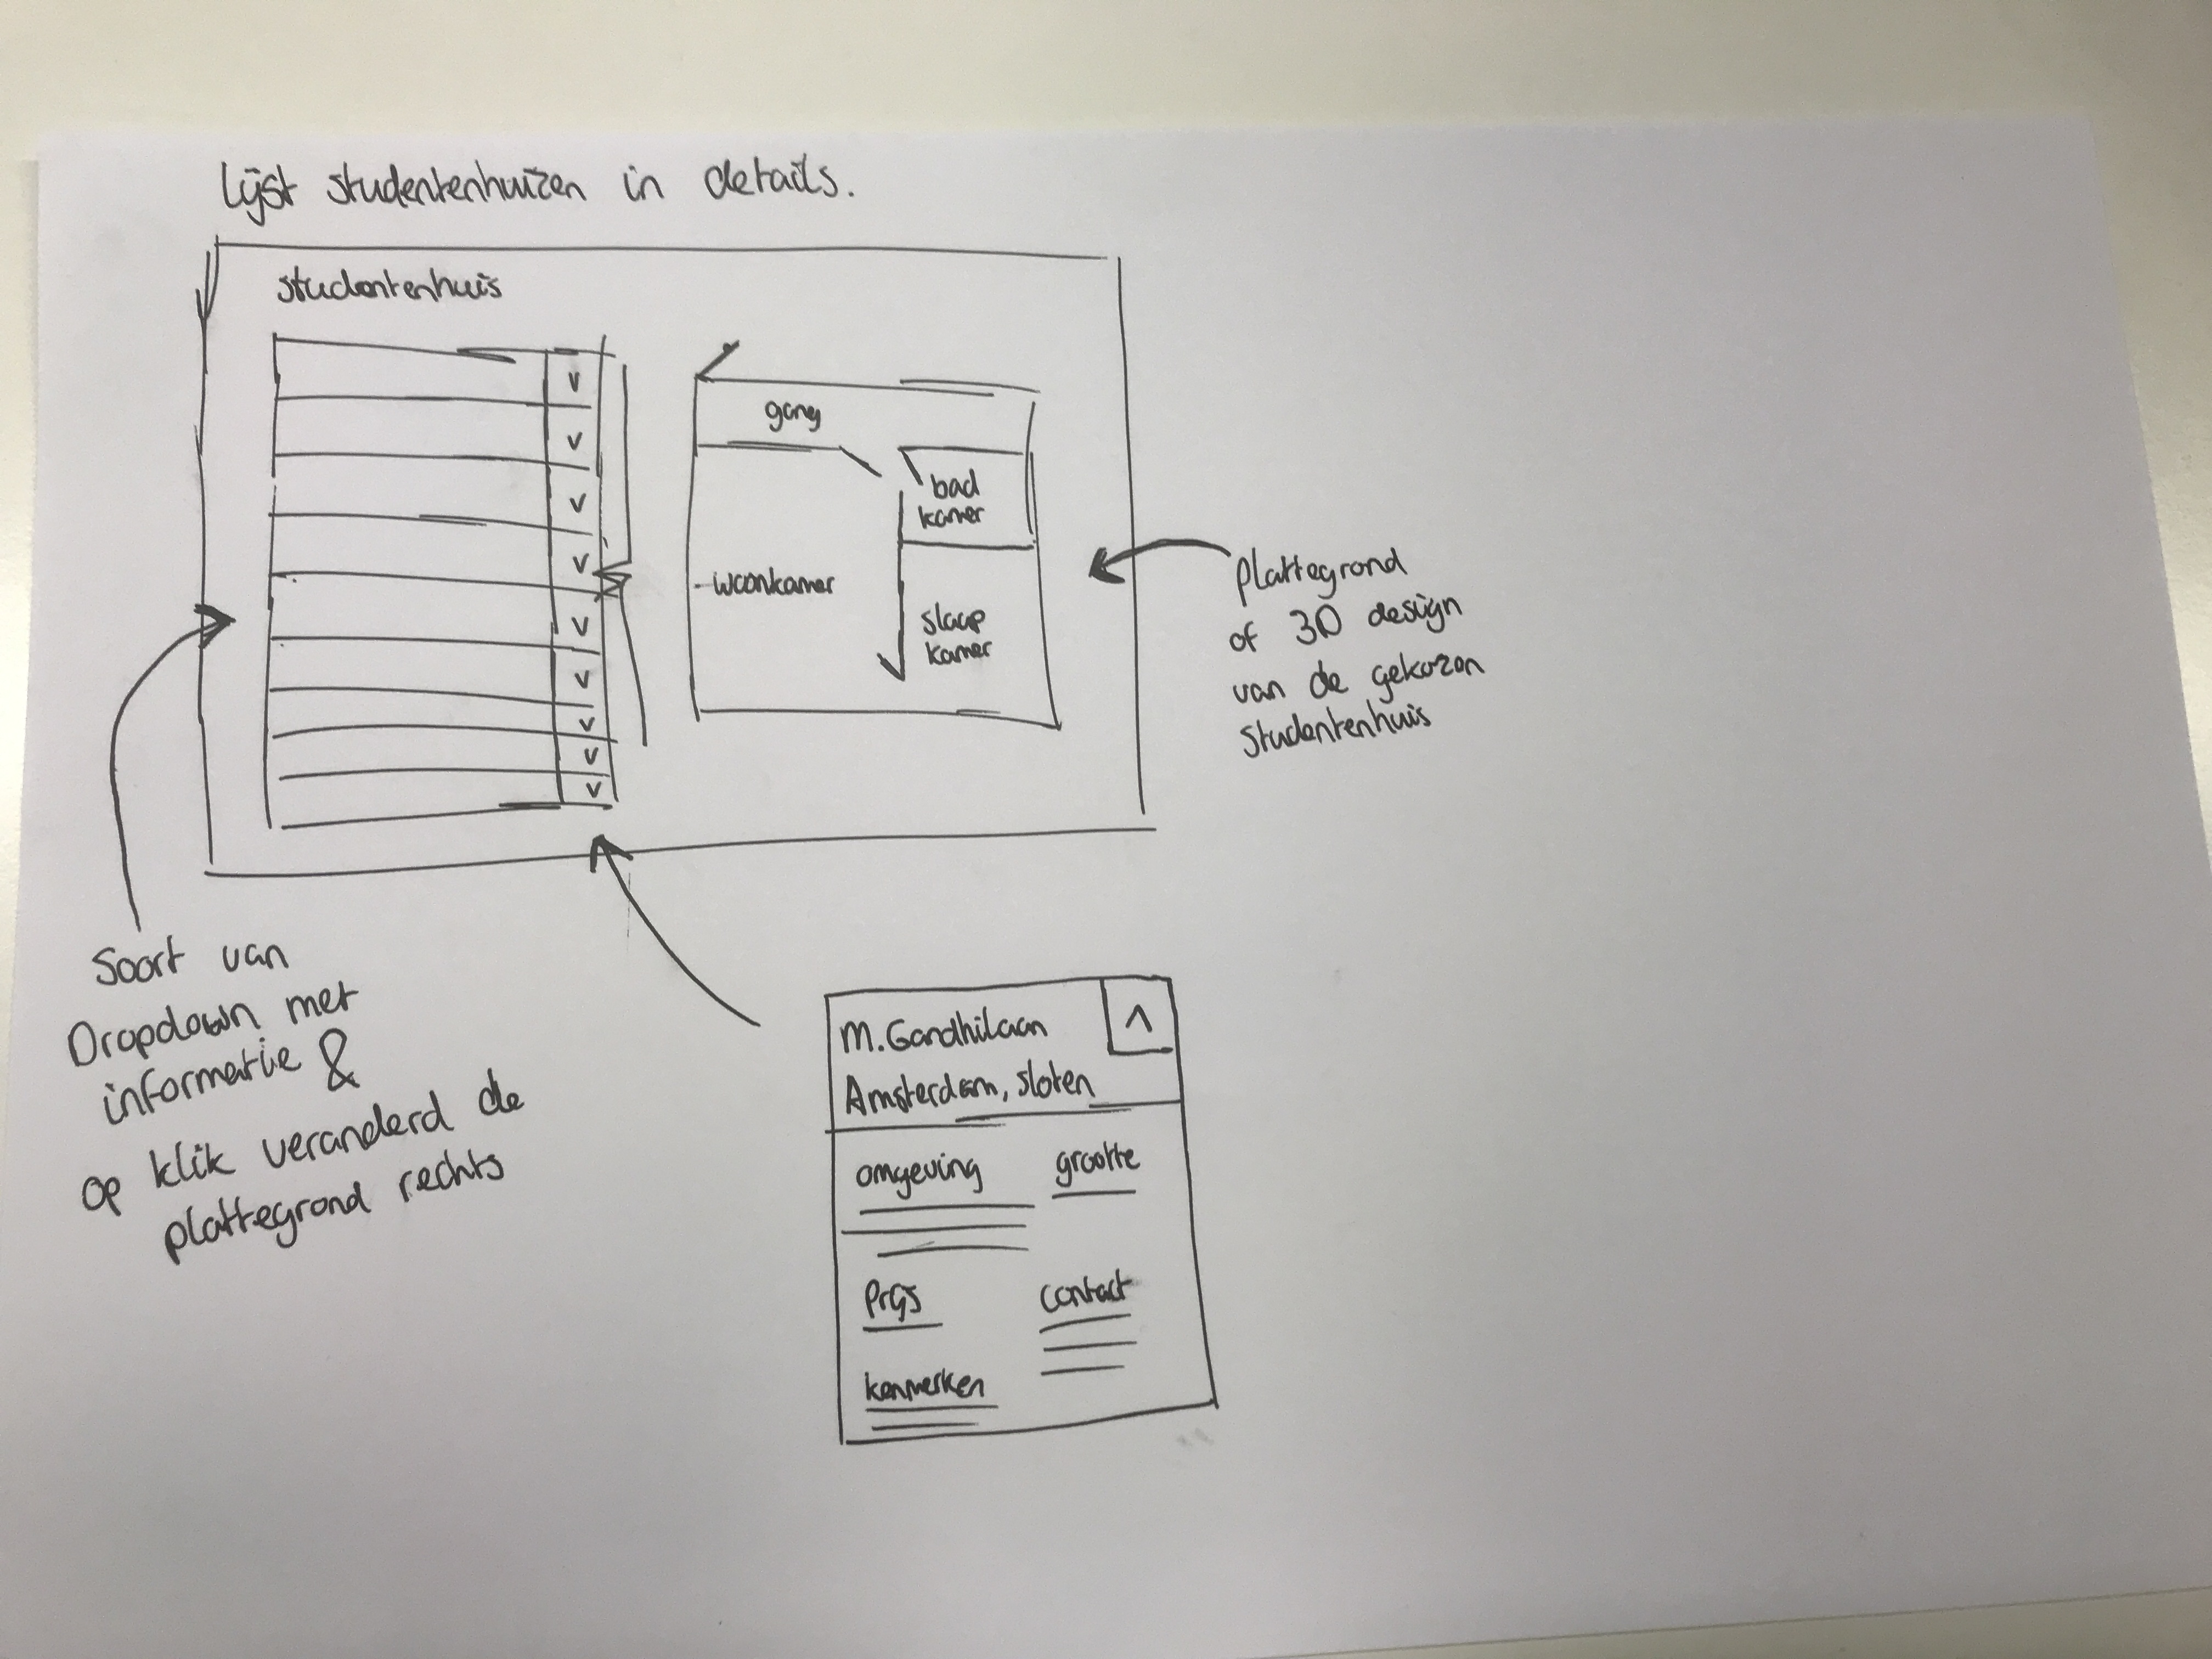 Lijst studentenhuizen in details.
studentenhuis
v
v
v
v
v
v
v
v
v
gang
bad
kamer
woonkamer
slaap
kamer
plattegrond
of 3D design
van de gekozen
studentenhuis
Soort van
Dropdown met
informatie &
op klik veranderd de
plattegrond rechts
M. Gandhilaan
Amsterdam, sloten
omgeving
grootte
Prijs
Contact
kenmerken